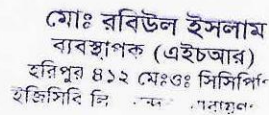 মোঃ রবিউল ইসলাম
ব্যবস্থাপক (এইচআর)
হরিপুর ৪১২ মেঃওঃ সিসিপিপি
ইজিসিবি লি